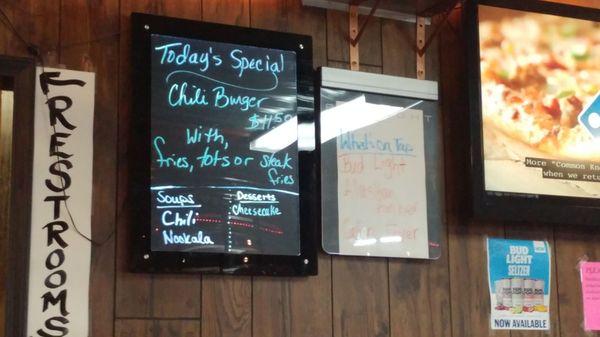 RESTROOMS
Today's Special
Chili Burger
With,
fries, tots or steak
fries
Soups
Chili
Nookala
Desserts
Cheesecake
What's on Tap
Bud Light
More "Common Kn
when we retu
BUD
LIGHT
SELTZER
NOW AVAILABLE